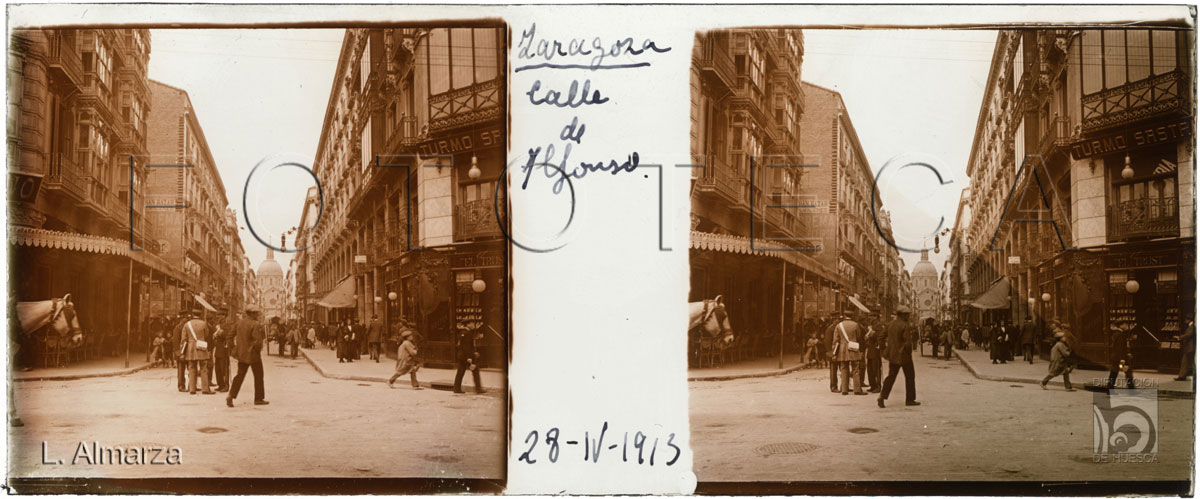 Zaragoza
Calle
de
Alfonso.
28-IV-1913
TURMO SASTRE
TRUST
L. Almarza
FOTOTECA
DIPUTACION
DE HUESCA